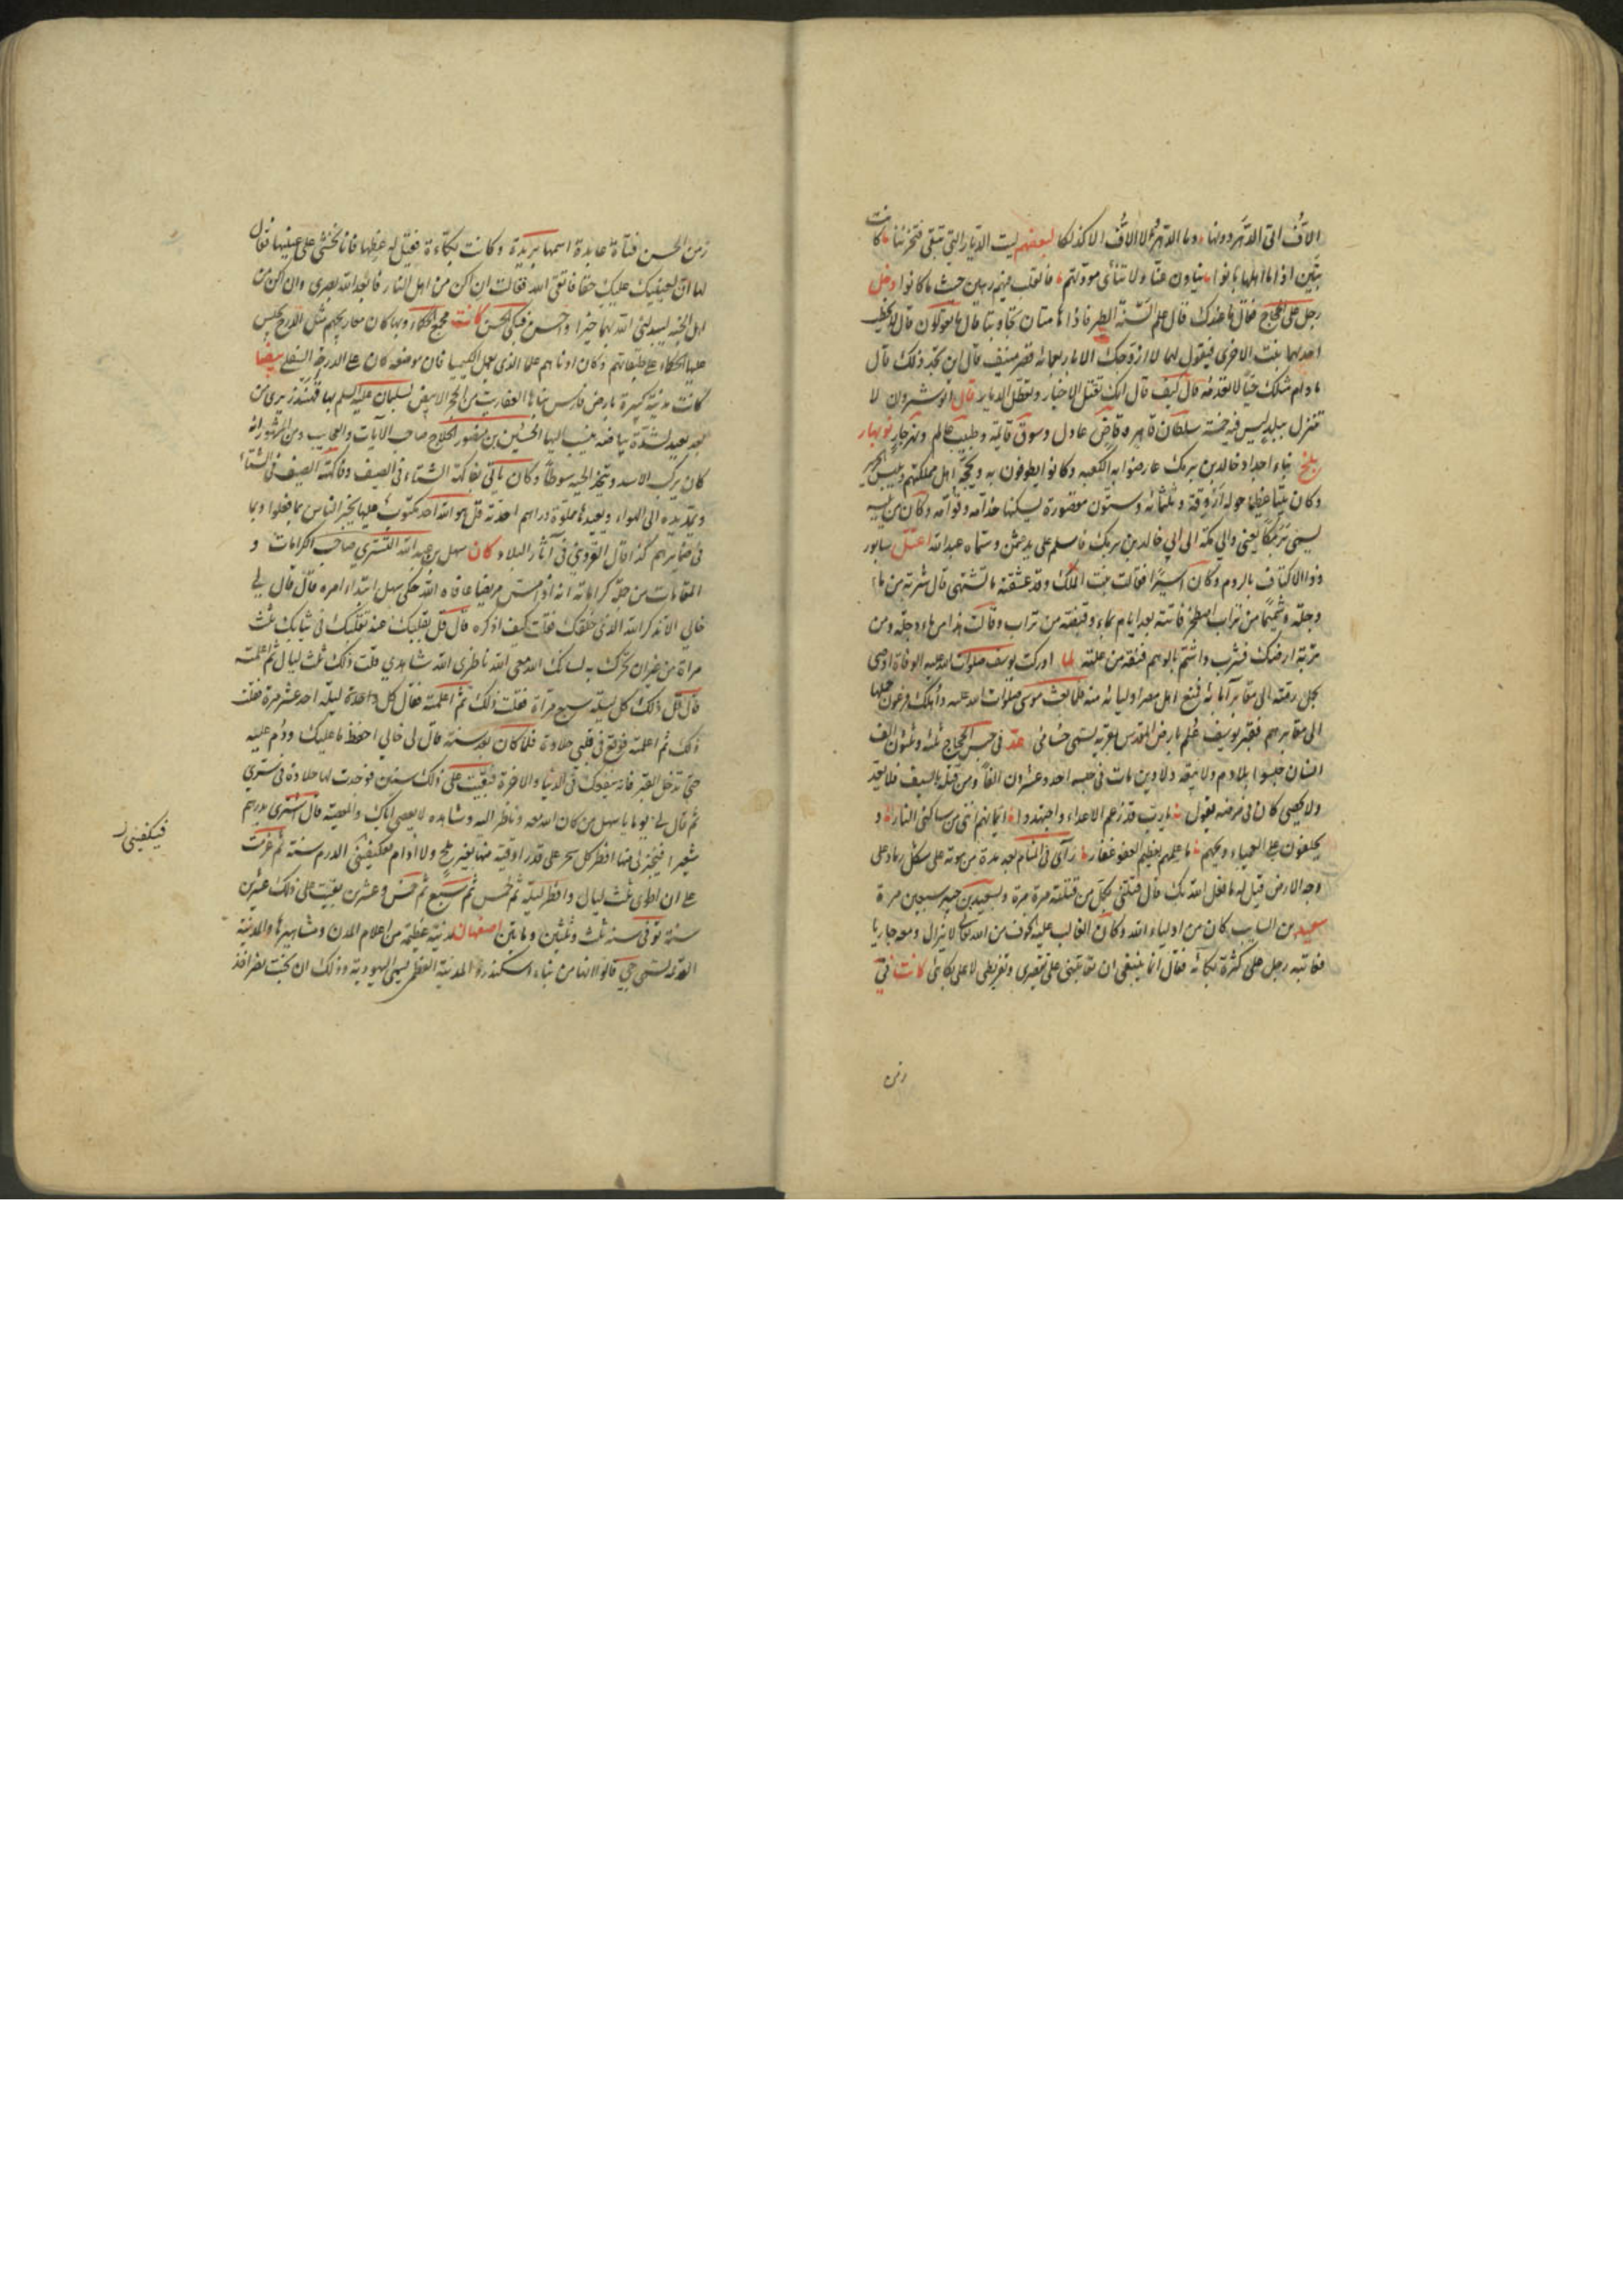 الاف الی الدهر دونها وما الدهر الا الاف الا کذلکا لبعضهم لیت الدیار التی تبقی فتحزننا کانت
تبین اذا ما اهلها بانوا ینأون عنا ولا تنأی مودتهم فالقلب فیهم رهین حیث ما کانوا دخل
رجل علی الحجاج فقال ما عندک قال علم السنة الطیر فاذا هامتان تجاوبتا قال ما تقولان قال
احدیهما بنت الاخری فیقول لها لا ازوجک الا باربعمائة قصر منیف قال این تجد ذلک قال
مادام مثلک حیا لا نعدمه قال کیف قال لانک تقتل الاخیار وتعطل الدیار قال انوشیروان لا
تنزل ببلد لیس فیه خمسة سلطان قاهر وقاض عادل وسوق قائمة وطبیب عالم ونهر جار نوبهار
بلخ بناء اجداد خالد بن برمک عارضوا به الکعبة وکانوا یطوفون به ویحجه اهل مملکتهم ویلبس الحریر
وکان بیتا عظیما حوله اروقة وثلثمائة وستون مقصورة یسکنها خدامه وقوامه وکان من یلیه
یسمی برمکا یعنی والی مکة الی ابی خالد بن برمک فاسلم علی ید عثمن وسماه عبد الله اعتل سابور
ذو الاکتاف بالروم وکان اسیرا فقالت بنت الملک وقد عشقته ما تشتهی قال شربة من ماء
دجلة وشمیما من تراب اصطخر فاتته بعد ایام بماء وقبضة من تراب وقالت هذا من ماء دجلة ومن
تربة ارضک فشرب واشتم بالوهم فنقه من علته لما ادرکت یوسف صلوات الله علیه الوفاة اوصی
بحمل رمته الی مقابر آبائه فمنع اهل مصر اولیائه منه فلما بعث موسی صلوات الله علیه واهلک فرعون حملها
الی مقابرهم فقبر یوسف علم بارض المقدس بقریة تسمی حسامی عد فی حبس الحجاج ثلثة وثلثون الف
انسان حبسوا بلا دم ولا تبعة ولا دین مات فی حبسه احد وعشرون الفا ومن قتله بالسیف فلا یعد
ولا یحصی کان فی مرضه یقول یا رب قد زعم الاعداء واجتهدوا ایمانهم اننی من ساکنی النار و
یحلفون علی العمیاء ویحهم ما علمهم بعظیم العفو غفار رأی فی المنام بعد مدة من موته علی شکل رماد علی
وجه الارض قیل له ما فعل الله بک قال قتلنی بکل من قتلته مرة مرة وبسعید بن جبیر سبعین مرة
سعید بن السایب کان من اولیاء الله وکان الغالب علیه الخوف من الله تعالی لا یزال دمعه جاریا
فعاتبه رجل علی کثرة بکائه فقال انما ینبغی ان تعاتبنی علی تقصیری وتفریطی لا علی بکائی کانت فی
زمن
زمن الحسن فتاة عابدة اسمها بریدة وکانت بکاءة فقیل له عظها فانا نخشی علی عینیها فقال
لها ان لعینیک علیک حقا فاتقی الله فقالت ان اکن من اهل النار فابعد الله بصری وان اکن من
اهل الجنة لیبدلنی الله بهما خیرا واحسن فبکی الحسن کانت مجمع الحکماء وبها کان معاریجهم مثل الدرج یجلس
علیها الحکماء علی طبقاتهم وکان ادناهم علما الذی یعمل الکیمیا فان موضعه کان علی الدرجة السفلی بیضا
کانت مدینة کبیرة بارض فارس بناها العفاریت من الحجر الابیض لسلیمان علیه السلم بها قهندز یری من
بعد بعید لشدة بیاضه ینسب الیها الحسین بن منصور الحلاج صاحب الآیات والعجایب ومن المشهور انه
کان یرکب الاسد ویتخذ الحیة سوطا وکان یأتی بفاکهة الشتاء فی الصیف وفاکهة الصیف فی الشتاء
ویمد یده الی الهواء ویعیدها مملوة دراهم احدیة قل هو الله احد مکتوب علیها یخبر الناس بما فعلوا وبما
فی ضمایرهم کذا قال القزوینی فی آثار البلاد کان سهل بن عبد الله التستری صاحب الکرامات و
المقامات من جملة کراماته انه اذا مس مریضا عافاه الله حکی سهل ابتداء امره قال قال لی
خالی الا تذکر الله الذی خلقک فقلت کیف اذکره قال قل بقلبک عند تقلبک فی ثیابک ثلث
مراة من غیر ان تحرک به لسانک الله معی الله ناظری الله شاهدی قلت ذلک ثلث لیال ثم اعلمته
قال قل ذلک کل لیلة سبع مراة فقلت ذلک ثم اعلمته فقال کل واحدة لیلة احد عشر مرة فقلت
ذلک ثم اعلمته فوقع فی قلبی حلاوة فلما کان بعد سنة قال لی خالی احفظ ما علمتک ودم علیه
حتی تدخل القبر فانه ینفعک فی الدنیا والاخرة فبقیت علی ذلک سنین فوجدت لها حلاوة فی سری
ثم قال لی یوما یا سهل من کان الله معه وناظر الیه وشاهده لا یعصی ایاک والمعصیة قال اشتری بدرهم
شعیرا فیخبز لی منها افطر کل سحر علی قدر اوقیة منها بغیر ملح ولا ادام فکیفینی الدرم سنة ثم عزمت
علی ان اطوی ثلث لیال وافطر لیلة ثم خمس ثم سبع ثم خمس وعشرین بقیت علی ذلک عشرین
سنة توفی سنة ثلث وثمنین ومایتین اصفهان مدینة عظیمة من اعلام المدن ومشاهیرها والمدینة
القدیمة تسمی جی قالوا لانها من بناء اسکندر والمدینة العظمی تسمی الیهودیة وذلک ان بخت نصر اخذ
فیکفینی